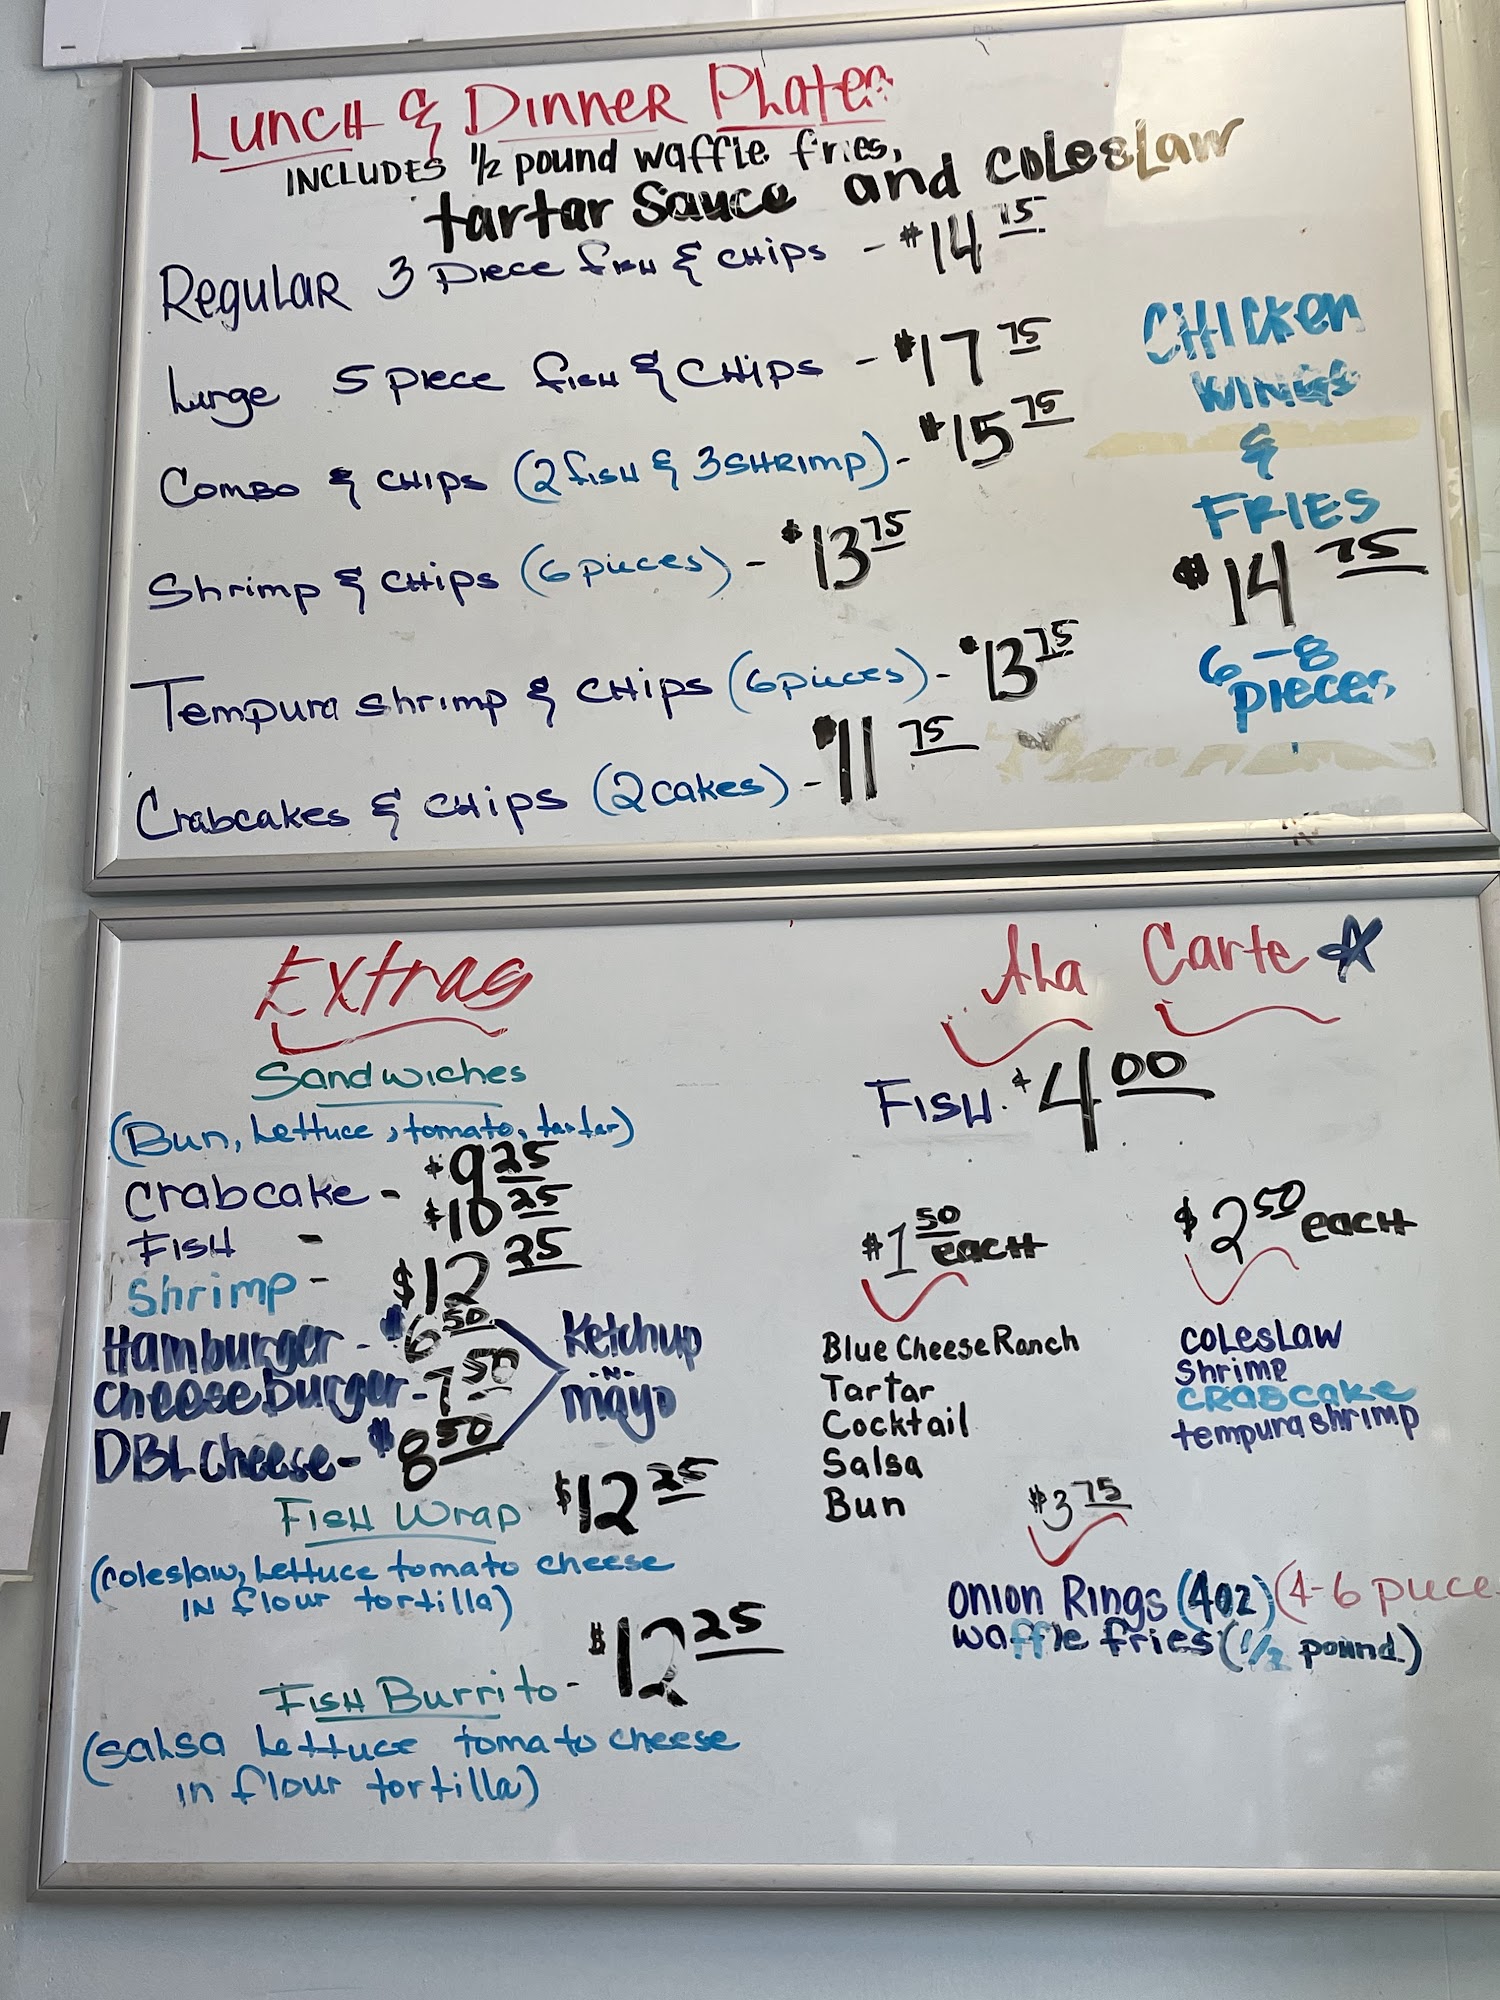 Lunch & Dinner Plates
INCLUDES 1/2 pound waffle fries,
tartar Sauce and coleslaw
Regular 3 piece fish & chips - $14 75
Large 5 piece fish & chips - $17 75
Combo & chips (2 fish & 3 shrimp) - $15 75
Shrimp & chips (6 pieces) - $13 75
Tempura shrimp & chips (6 pieces) - $13 75
Crabcakes & chips (2 cakes) - $11 75
CHICKEN
WINGS
&
FRIES
$14 75
6-8
pieces
Extras
Sandwiches
(Bun, Lettuce, tomato, tartar)
crabcake - $9 25
FISH - $10 25
Shrimp - $12 25
Hamburger - $6 50
cheeseburger - 7 50
DBL cheese - $8 50
Ketchup
-N-
mayo
Fish Wrap $12 25
(coleslaw, Lettuce tomato cheese
IN flour tortilla)
Fish Burrito - $12 25
(salsa Lettuce tomato cheese
in flour tortilla)
Ala Carte
FISH. $4 00
$1 50 each
Blue Cheese Ranch
Tartar
Cocktail
Salsa
Bun
$2 50 each
coleslaw
Shrimp
CRABCAKE
tempura shrimp
$3 75
Onion Rings (4oz) (4-6 piece
waffle fries (1/2 pound)